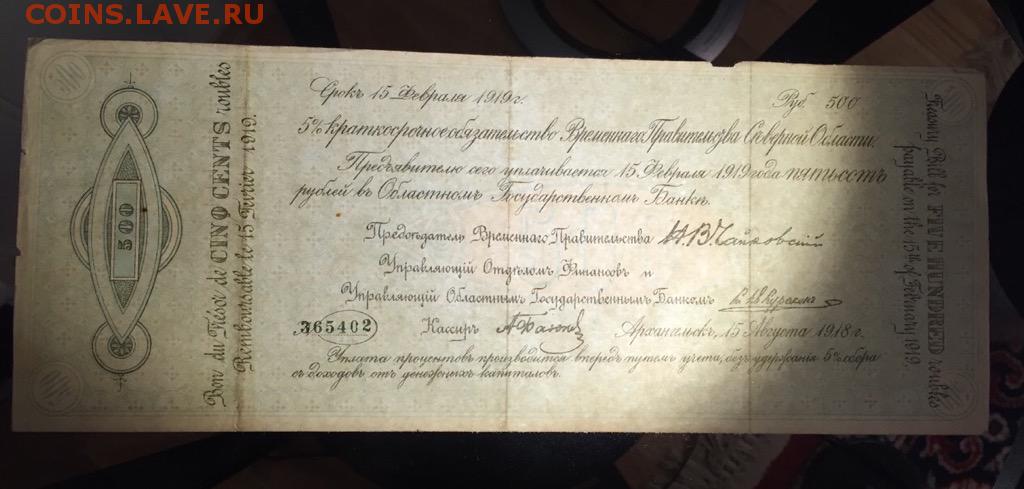 COINS.LAVE.РУ
Срокъ 15 Февраля 1919 г.
Руб. 500
5% краткосрочное обязательство Временнаго Правительства Северной Области.
Предъявителю сего уплачивается 15 Февраля 1919 года пятьсотъ
рублей въ Областномъ Государственномъ Банкѣ.
Предсѣдатель Временнаго Правительства Н.В. Чайковский
Управляющій Отдѣломъ Финансовъ и
Управляющій Областнымъ Государственнымъ Банкомъ
365402
Кассиръ
Архангельскъ, 15 Августа 1918 г.
Уплата процентовъ производится впередъ путемъ учета, безъ удержания 5% сбора
съ доходовъ отъ денежныхъ капиталовъ.
500
Bon du Trésor de CINQ CENTS roubles
Remboursable le 15 Fevrier 1919.
Treasury Bill for FIVE HUNDRED roubles
payable on the 15th of February 1919.